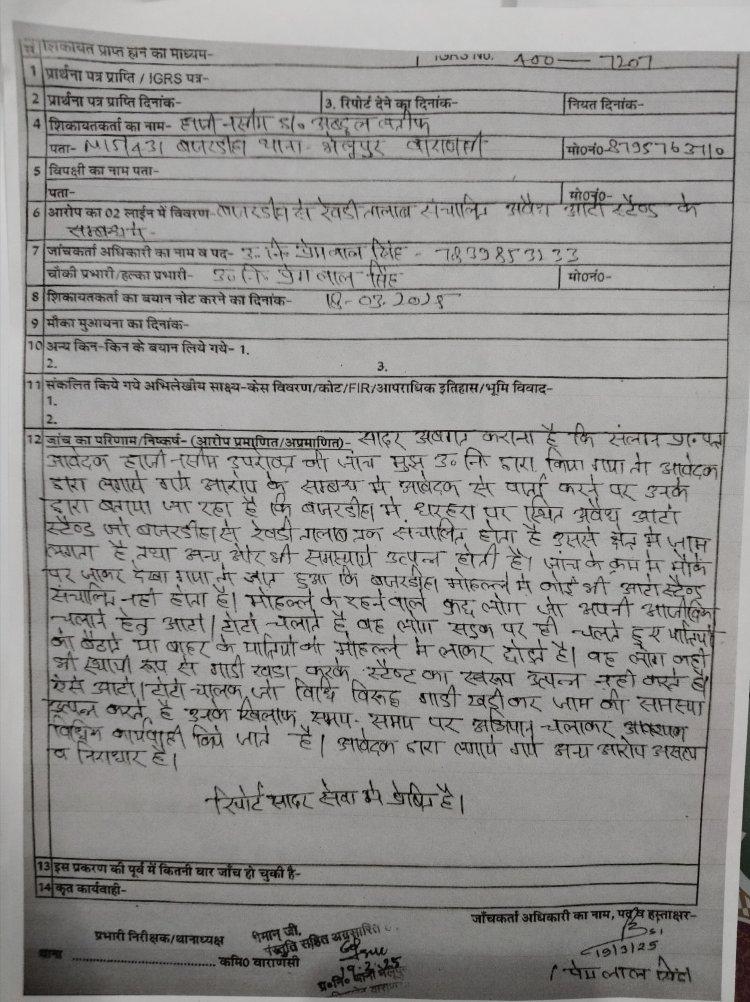 शिकायत प्राप्त होने का माध्यम- IGRS NO. 400 — 7207
1 प्रार्थना पत्र प्राप्ति / IGRS पत्र-
2 प्रार्थना पत्र प्राप्ति दिनांक- 3. रिपोर्ट देने का दिनांक- नियत दिनांक-
4 शिकायतकर्ता का नाम- हाजी नसीम S/o अब्दुल
पता- बजरडीहा थाना- भेलूपुर वाराणसी मो०नं०-8795763710
5 विपक्षी का नाम पता-
पता- मो०नं०-
6 आरोप का 02 लाईन में विवरण- बजरडीहा से रेवडी तालाब संचालित अवैध आटो स्टैण्ड के
सम्बन्ध मे-
7 जांचकर्ता अधिकारी का नाम व पद- उ० नि० प्रेम लाल सिंह- 7839853133
चौकी प्रभारी/हल्का प्रभारी- उ० नि० प्रेम लाल सिंह मो०नं०-
8 शिकायतकर्ता का बयान नोट करने का दिनांक- 18-03.2025
9 मौका मुआयना का दिनांक-
10 अन्य किन-किन के बयान लिये गये- 1.
2. 3.
11 संकलित किये गये अभिलेखीय साक्ष्य-केस विवरण/कोट/FIR/आपराधिक इतिहास/भूमि विवाद-
1.
2.
12 जांच का परिणाम/निष्कर्ष- (आरोप प्रमाणित/अप्रमाणित)- सादर अवगत कराना है कि संलग्न प्रा० पत्र
आवेदक हाजी नसीम उपरोक्त की जांच मुझ उ० नि० द्वारा किया गया तो आवेदक
द्वारा लगाये गये आरोप के सम्बन्ध मे आवेदक से वार्ता करने पर उनके
द्वारा बताया जा रहा है कि बजरडीहा मे धरहरा पर स्थित अवैध आटो
स्टैण्ड जो बाजरडीहा से रेवडी तालाब तक संचालित होता है उससे क्षेत्र मे जाम
लगता है तथा अन्य और भी समस्याये उत्पन्न होती है। जांच के क्रम मे मौके
पर जाकर देखा गया तो ज्ञात हुआ कि बजरडीहा मोहल्ले मे कोई भी आटो स्टैण्ड
संचालित नहीं होता है। मोहल्ले के रहने वाले कुछ लोग जो अपनी आजीविका
चलाने हेतु आटो/टोटो चलाते है वह लोग सडक पर ही चलते हुए यात्रियो
को बैठाते या बाहर के यात्रियो को मोहल्ले मे लाकर छोडते है। वह लोग कही
भी स्थायी रूप से गाडी खडा करके स्टैण्ट का स्वरूप उत्पन्न नही करते है।
ऐसे आटो/टोटो चालक जो विधि विरूद्ध गाडी खडी कर जाम की समस्या
उत्पन्न करते है उनके खिलाफ समय-समय पर अभियान चलाकर आवश्यक
विधिक कार्यवाही किये जाते है। आवेदक द्वारा लगाये गये अन्य आरोप असत्य
व निराधार है।
रिपोर्ट सादर सेवा मे प्रेषित है।
13 इस प्रकरण की पूर्व में कितनी बार जाँच हो चुकी है-
14 कृत कार्यवाही-
जाँचकर्ता अधिकारी का नाम, पद व हस्ताक्षर-
श्रीमान जी,
प्रभारी निरीक्षक/थानाध्यक्ष संस्तुति सहित अग्रसारित
थाना ........................ कमि0 वाराणसी
19/3/25
प्रेम लाल सिंह